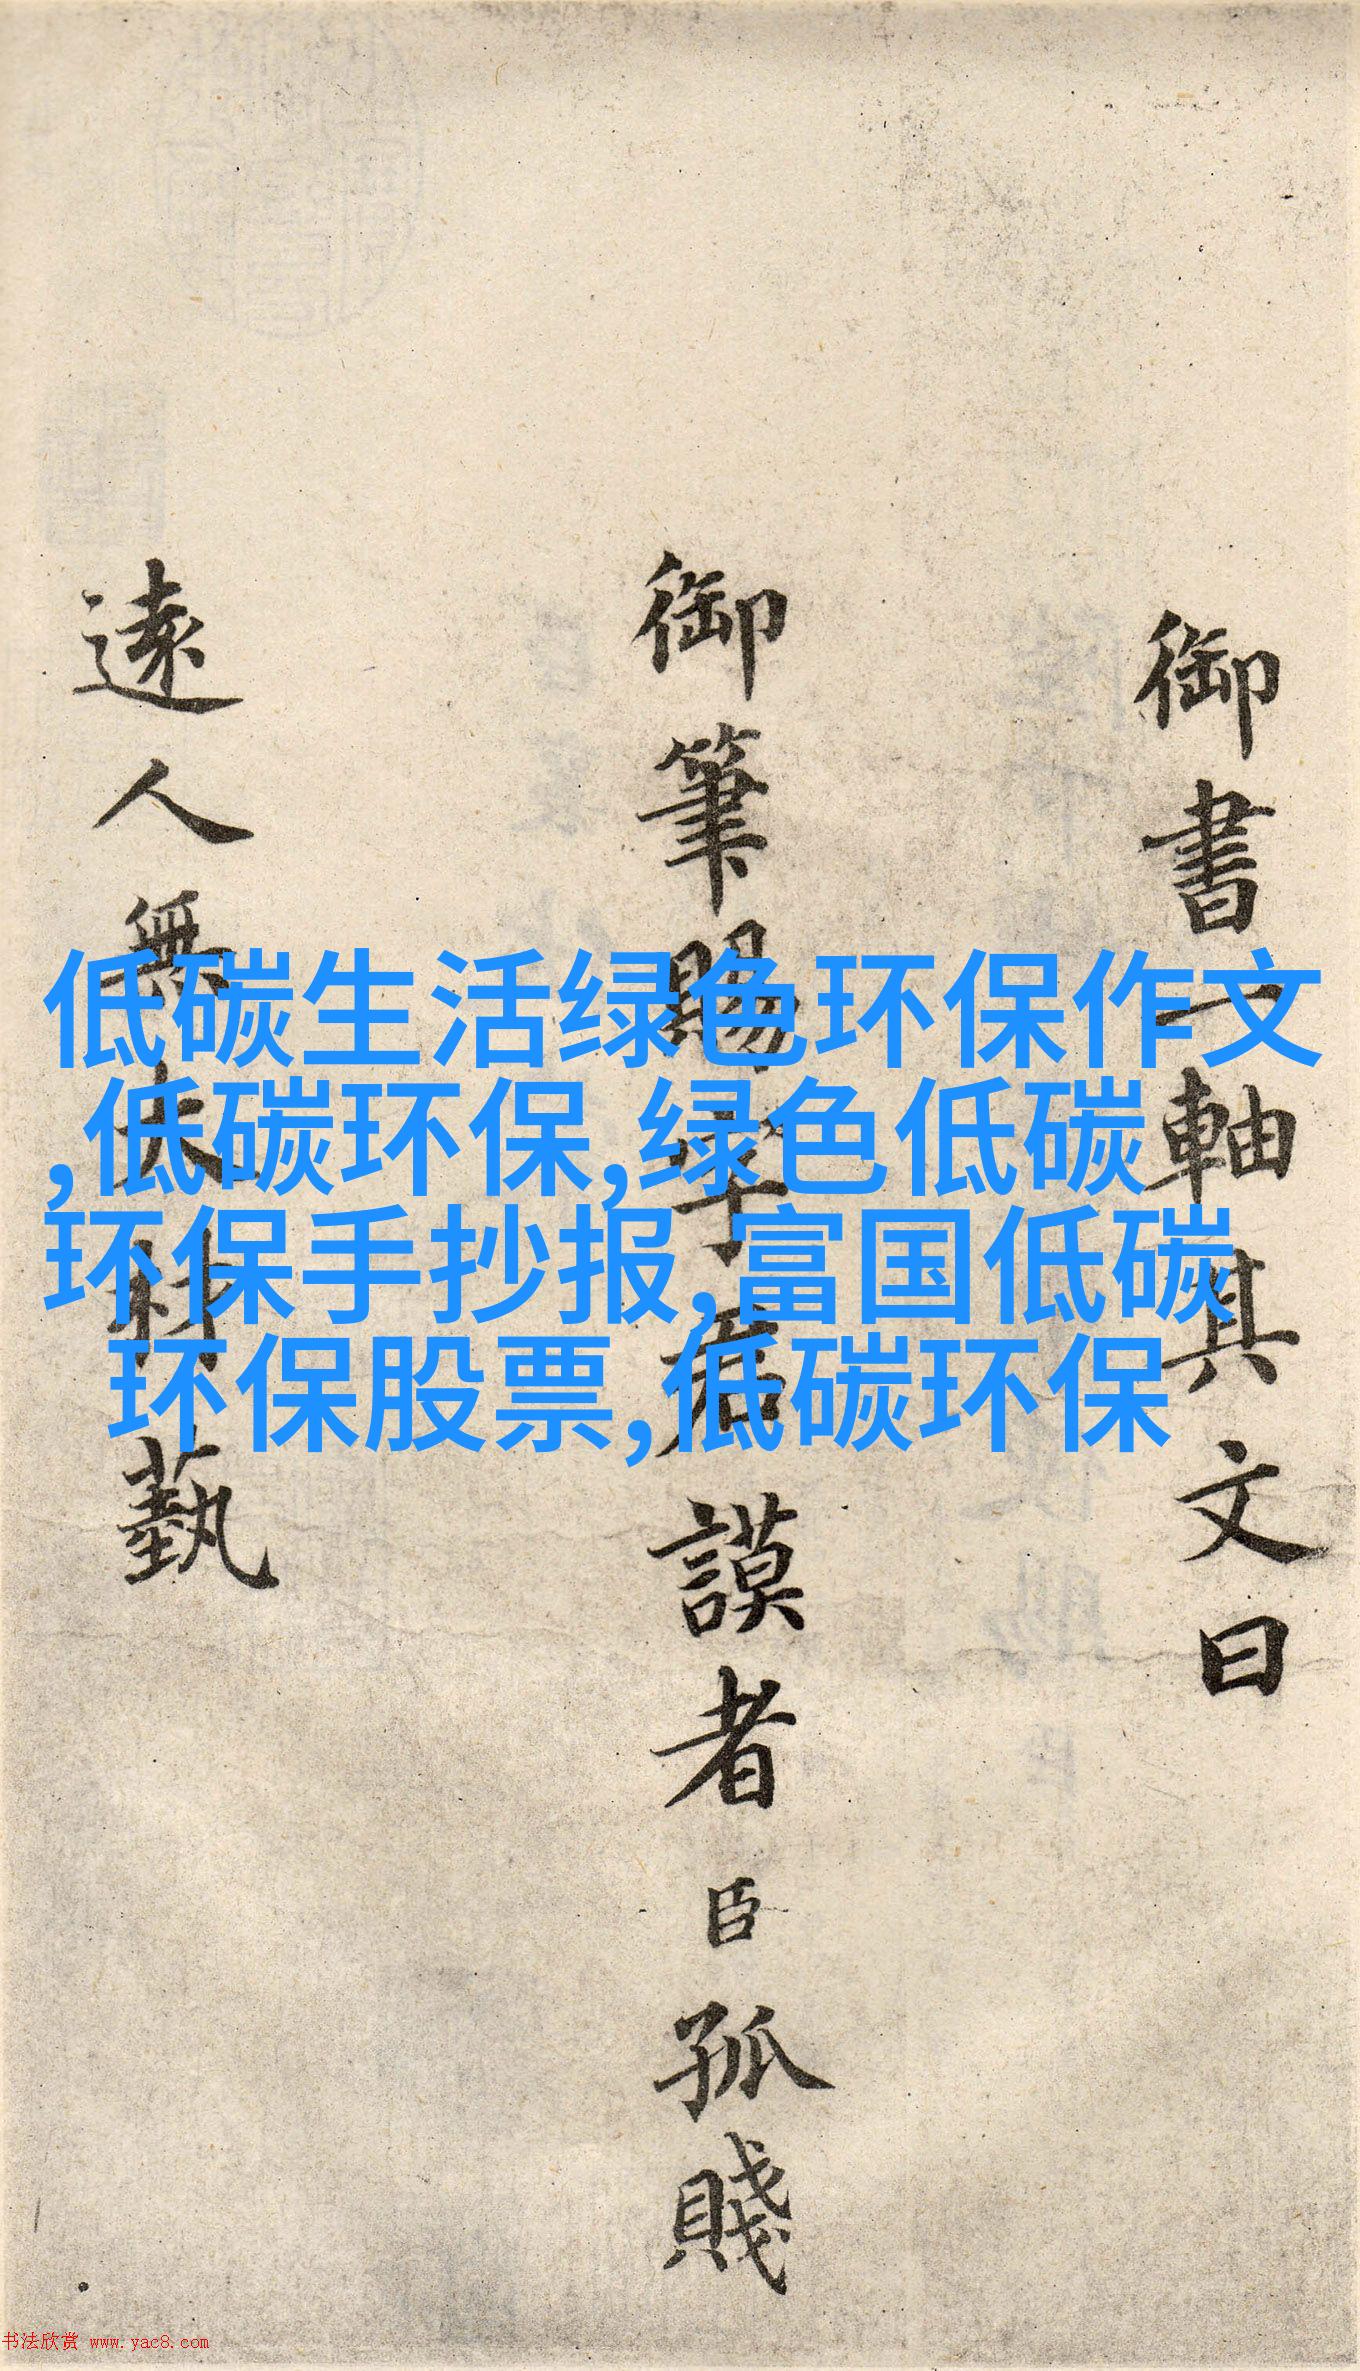 御書一軸其文曰
御筆賜字君謨者臣孤賤
遠人無大材藝
低碳生活绿色环保作文
,低碳环保,绿色低碳
环保手抄报,富国低碳
环保股票,低碳环保
书法欣赏 www.yac8.com